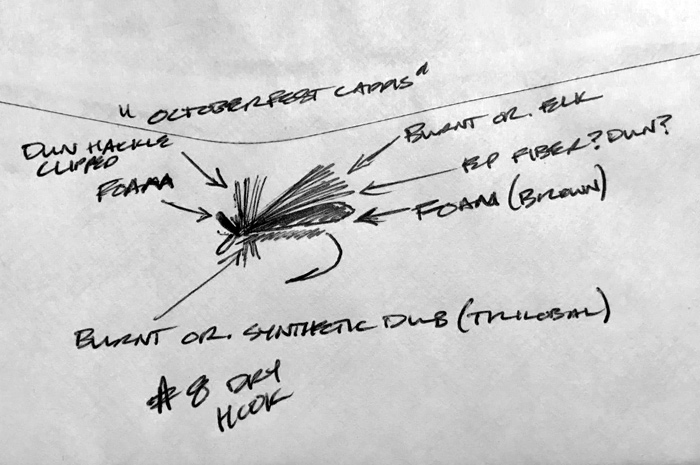 "OCTOBERFEST CADDIS"
DUN HACKLE
CLIPPED
FOAM
BURNT OR. ELK
EP FIBER? DUN?
FOAM (BROWN)
BURNT OR. SYNTHETIC DUB (TRILOBAL)
#8 DRY
HOOK